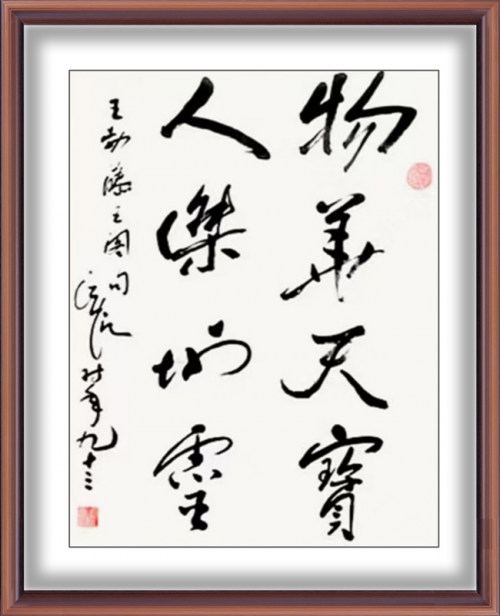 物華天寶
人傑地靈
王勃滕王阁句 时年九十三